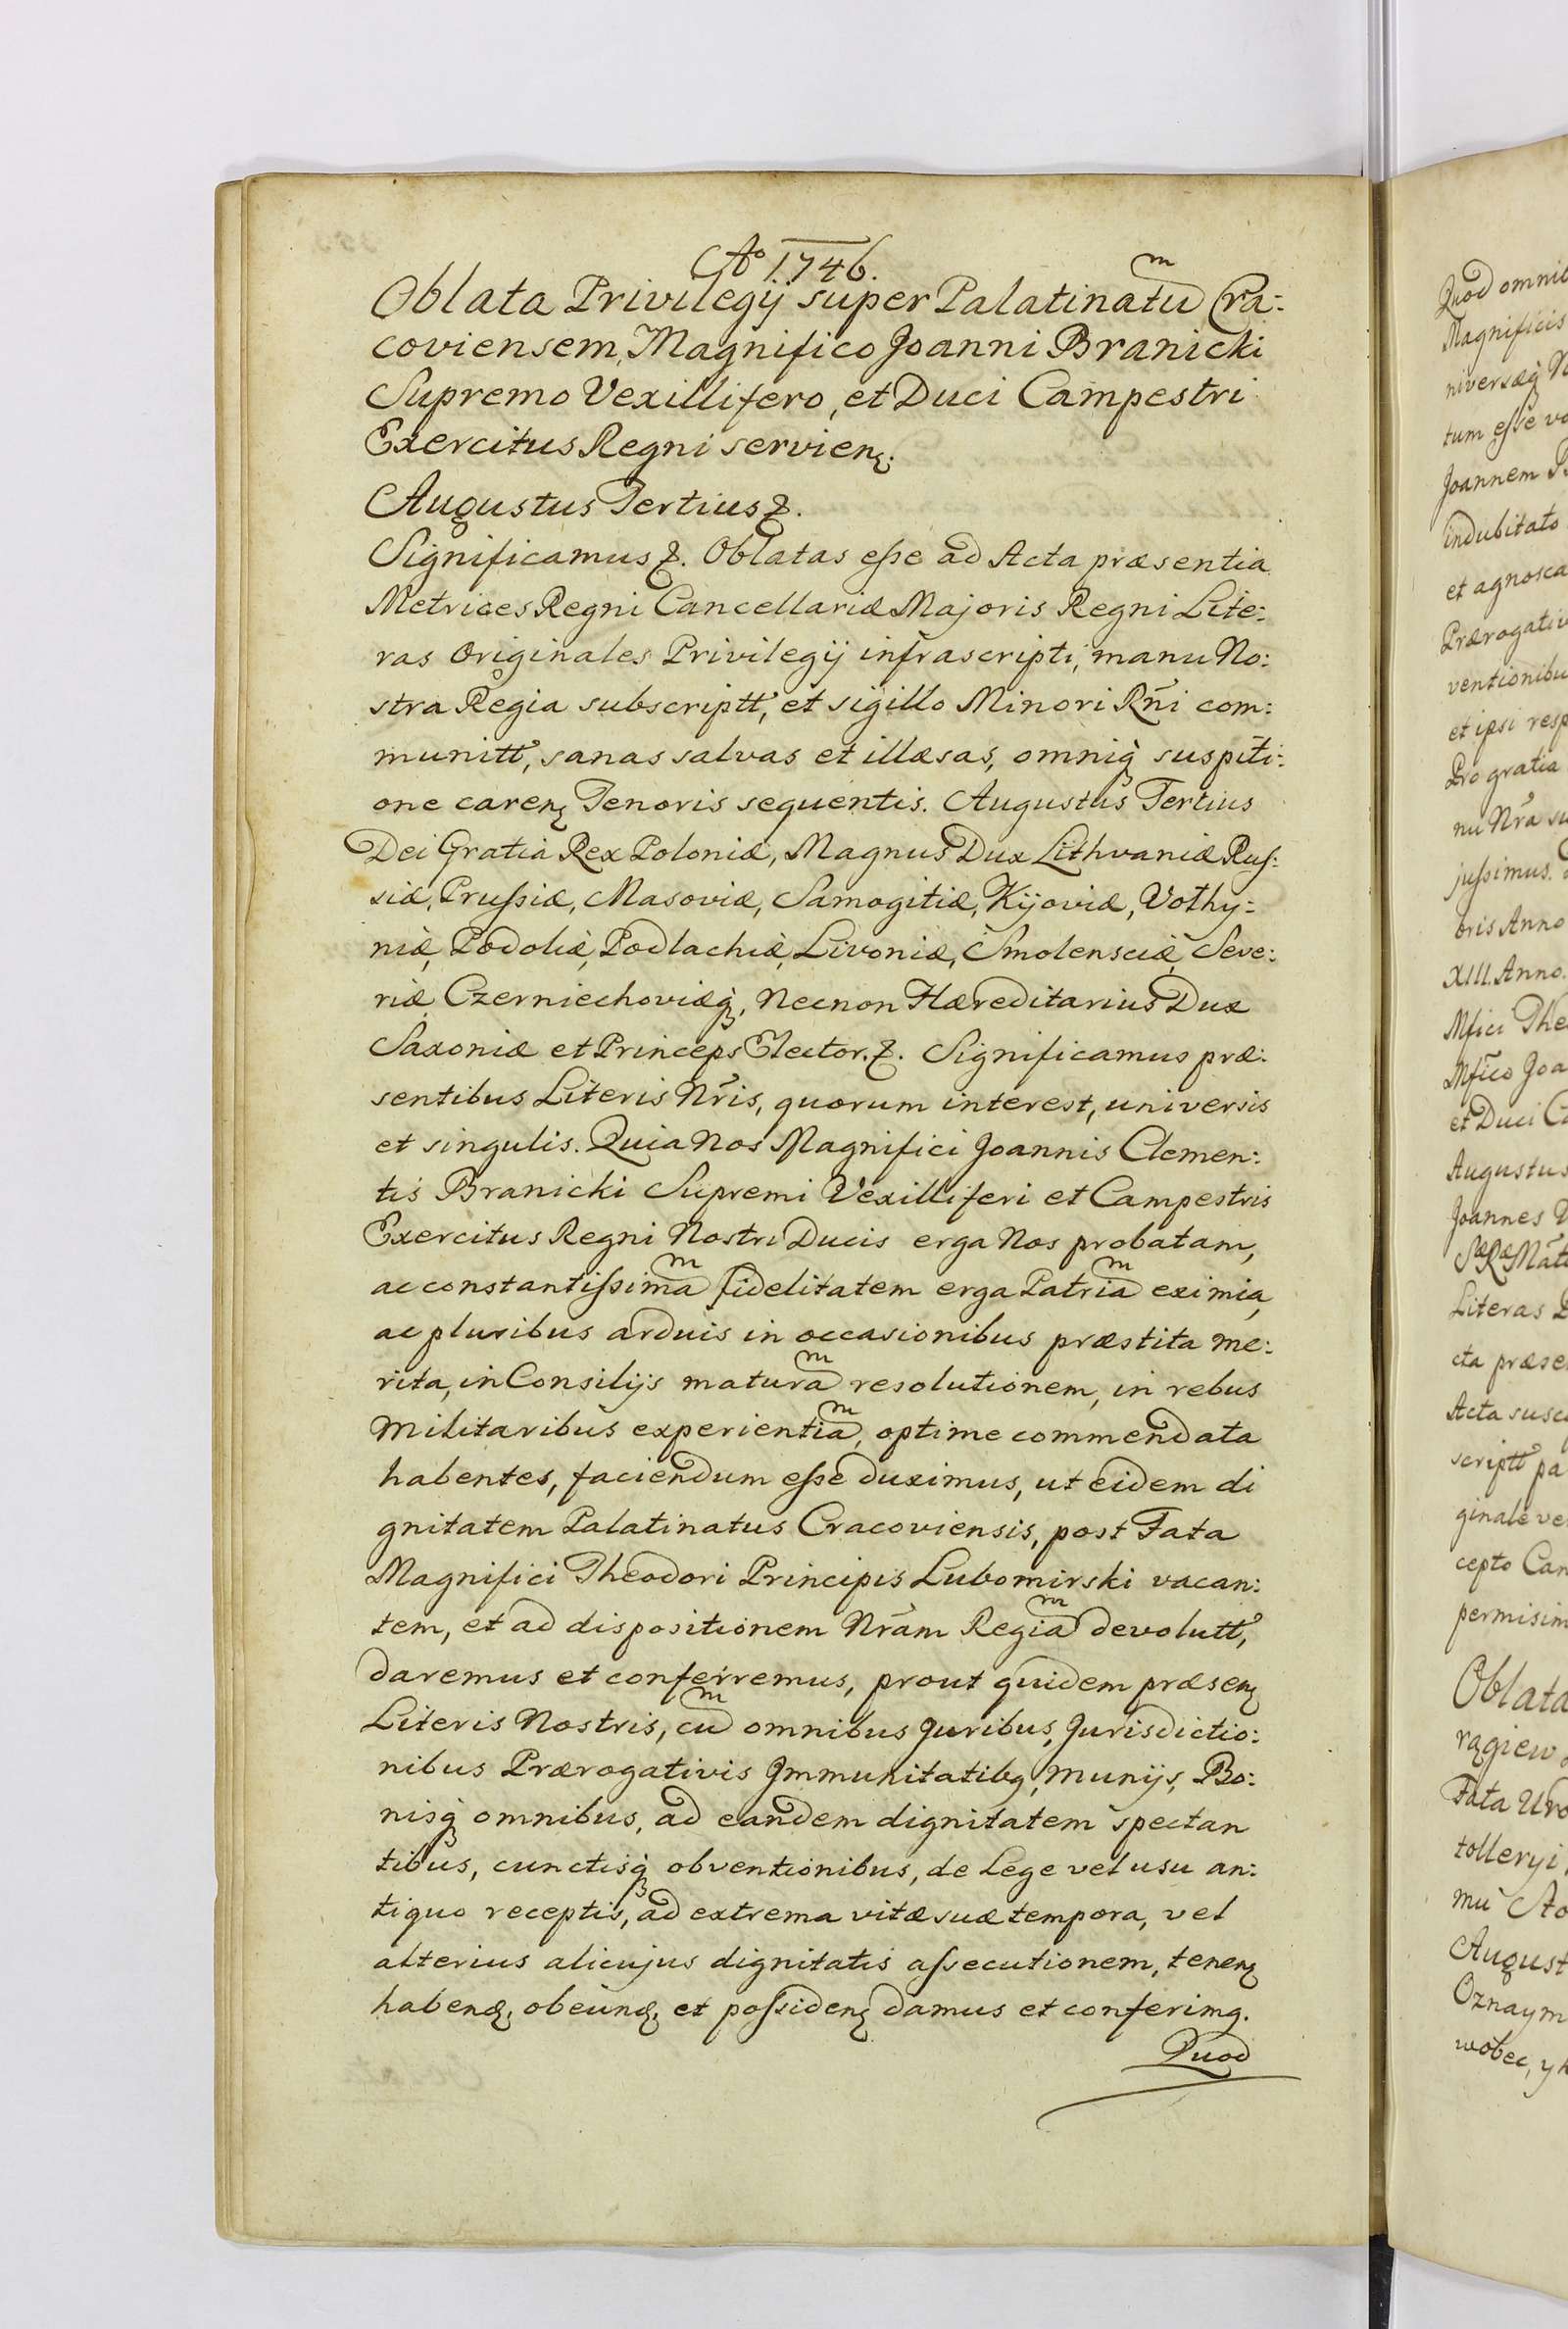 Aº 1746.
Oblata Privilegij super Palatinatũ Cra:
coviensem, Magnifico Joanni Branicki
Supremo Vexillifero, et Duci Campestri
Exercitus Regni servienꝫ.
Augustus Tertius ꝛ.
Significamus ꝛ. Oblatas eſse ad Acta præsentia
Metrices Regni Cancellariæ Majoris Regni Lite:
ras Originales Privilegij infrascripti, manu No:
stra Regia subscriptt, et sigillo Minori Rñi com:
munitt, sanas salvas et illæsas, omniq̃ suspiti:
one carenꝫ Tenoris sequentis. Augustus Tertius
Dei Gratia Rex Poloniæ, Magnus Dux Lithvaniæ Ruſ:
siæ, Pruſsiæ, Masoviæ, Samogitiæ, Kijoviæ, Volhy:
niæ, Podoliæ, Podlachiæ, Livoniæ, Smolensciæ, Seve:
riæ Czerniechoviæq̃, Necnon Hæreditarius Dux
Saxoniæ et Princeps Elector. ꝛ. Significamus præ:
sentibus Literis Nr̃is, quorum interest, universis
et singulis. Quia Nos Magnifici Joannis Clemen:
tis Branicki Supremi Vexilliferi et Campestris
Exercitus Regni Nostri Ducis erga Nos probatam,
ac constantiſsimã fidelitatem erga Patriã eximia,
ac pluribus arduis in occasionibus præstita me:
rita, in Consilijs maturã resolutionem, in rebus
Militaribus experientiã, optime commendata
habentes, faciendum eſse duximus, ut eidem di
gnitatem Palatinatus Cracoviensis, post Fata
Magnifici Theodori Principis Lubomirski vacan:
tem, et ad dispositionem Nr̃am Regiã devolutt,
daremus et conferremus, prout quidem præsenꝫ
Literis Nostris, cũ omnibus Juribus, Jurisdictio:
nibus Prærogativis Jmmunitatibꝫ, Munijs, Bo:
nisq̃ omnibus, ad eandem dignitatem spectan
tibus, cunctisq̃ obventionibus, de Lege vel usu an:
tiquo receptis, ad extrema vitæ suæ tempora, vel
alterius alicujus dignitatis aſsecutionem, tenenꝫ
habenꝫ, obeunꝫ, et poſsidenꝫ damus et conferimꝫ.
Quod
Quod omnib
Magnificis
niversæq̃
tum eſse vo
Joannem
indubitato
et agnosca
Prærogativ
ventionibu
et ipsi resp
Pro gratia
nu Nr̃a su
juſsimus.
oris Anno
XIII. Anno.
Mfici The
Mfico Joa
et Duci Ca
Augustus
Joannes
Literas
cta præse
Acta susc
scriptt pa
ginale ve
cepto Can
permisim
Oblata
rągiew
Fata Uro
tolleryi,
mu
August
Oznaym
wobec, y k